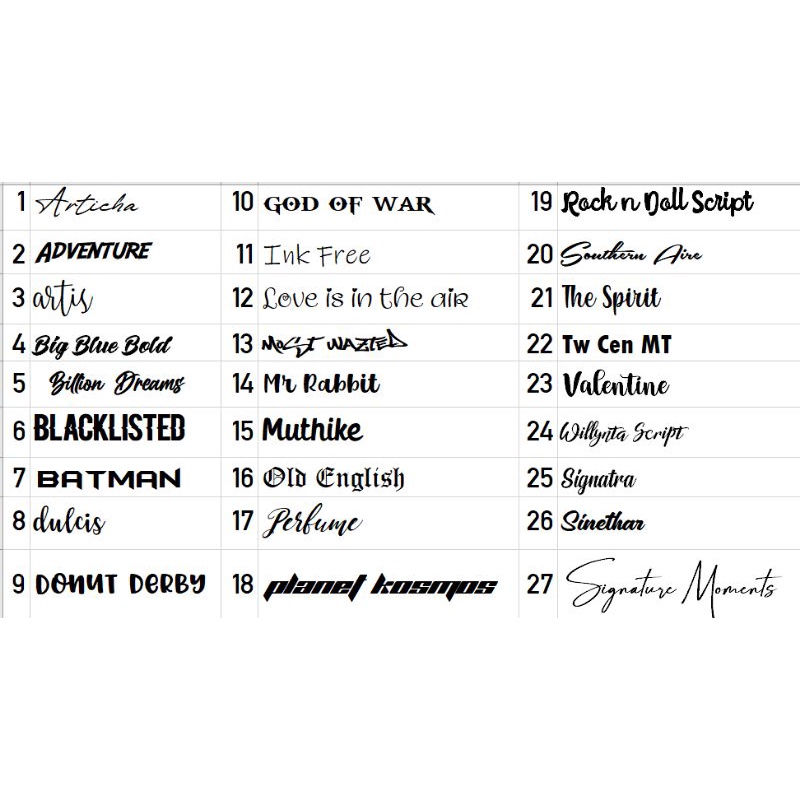 1 Articha
2 ADVENTURE
3 artis
4 Big Blue Bold
5 Billion Dreams
6 BLACKLISTED
7 BATMAN
8 dulcis
9 DONUT DERBY
10 GOD OF WAR
11 Ink Free
12 Love is in the air
13 MOST WAZTED
14 Mr Rabbit
15 Muthike
16 Old English
17 Perfume
18 planet kosmos
19 Rock n Doll Script
20 Southern Aire
21 The Spirit
22 Tw Cen MT
23 Valentine
24 Willynta Script
25 Signatra
26 Sinethar
27 Signature Moments